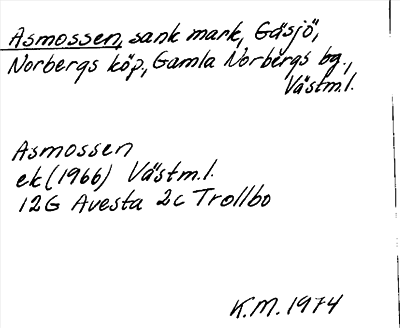 Asmossen, sank mark, Gäsjö,
Norbergs köp., Gamla Norbergs bg.,
Västm.l.
Asmossen
ek (1966) Västm.l.
12G Avesta 2c Trollbo
K.M. 1974